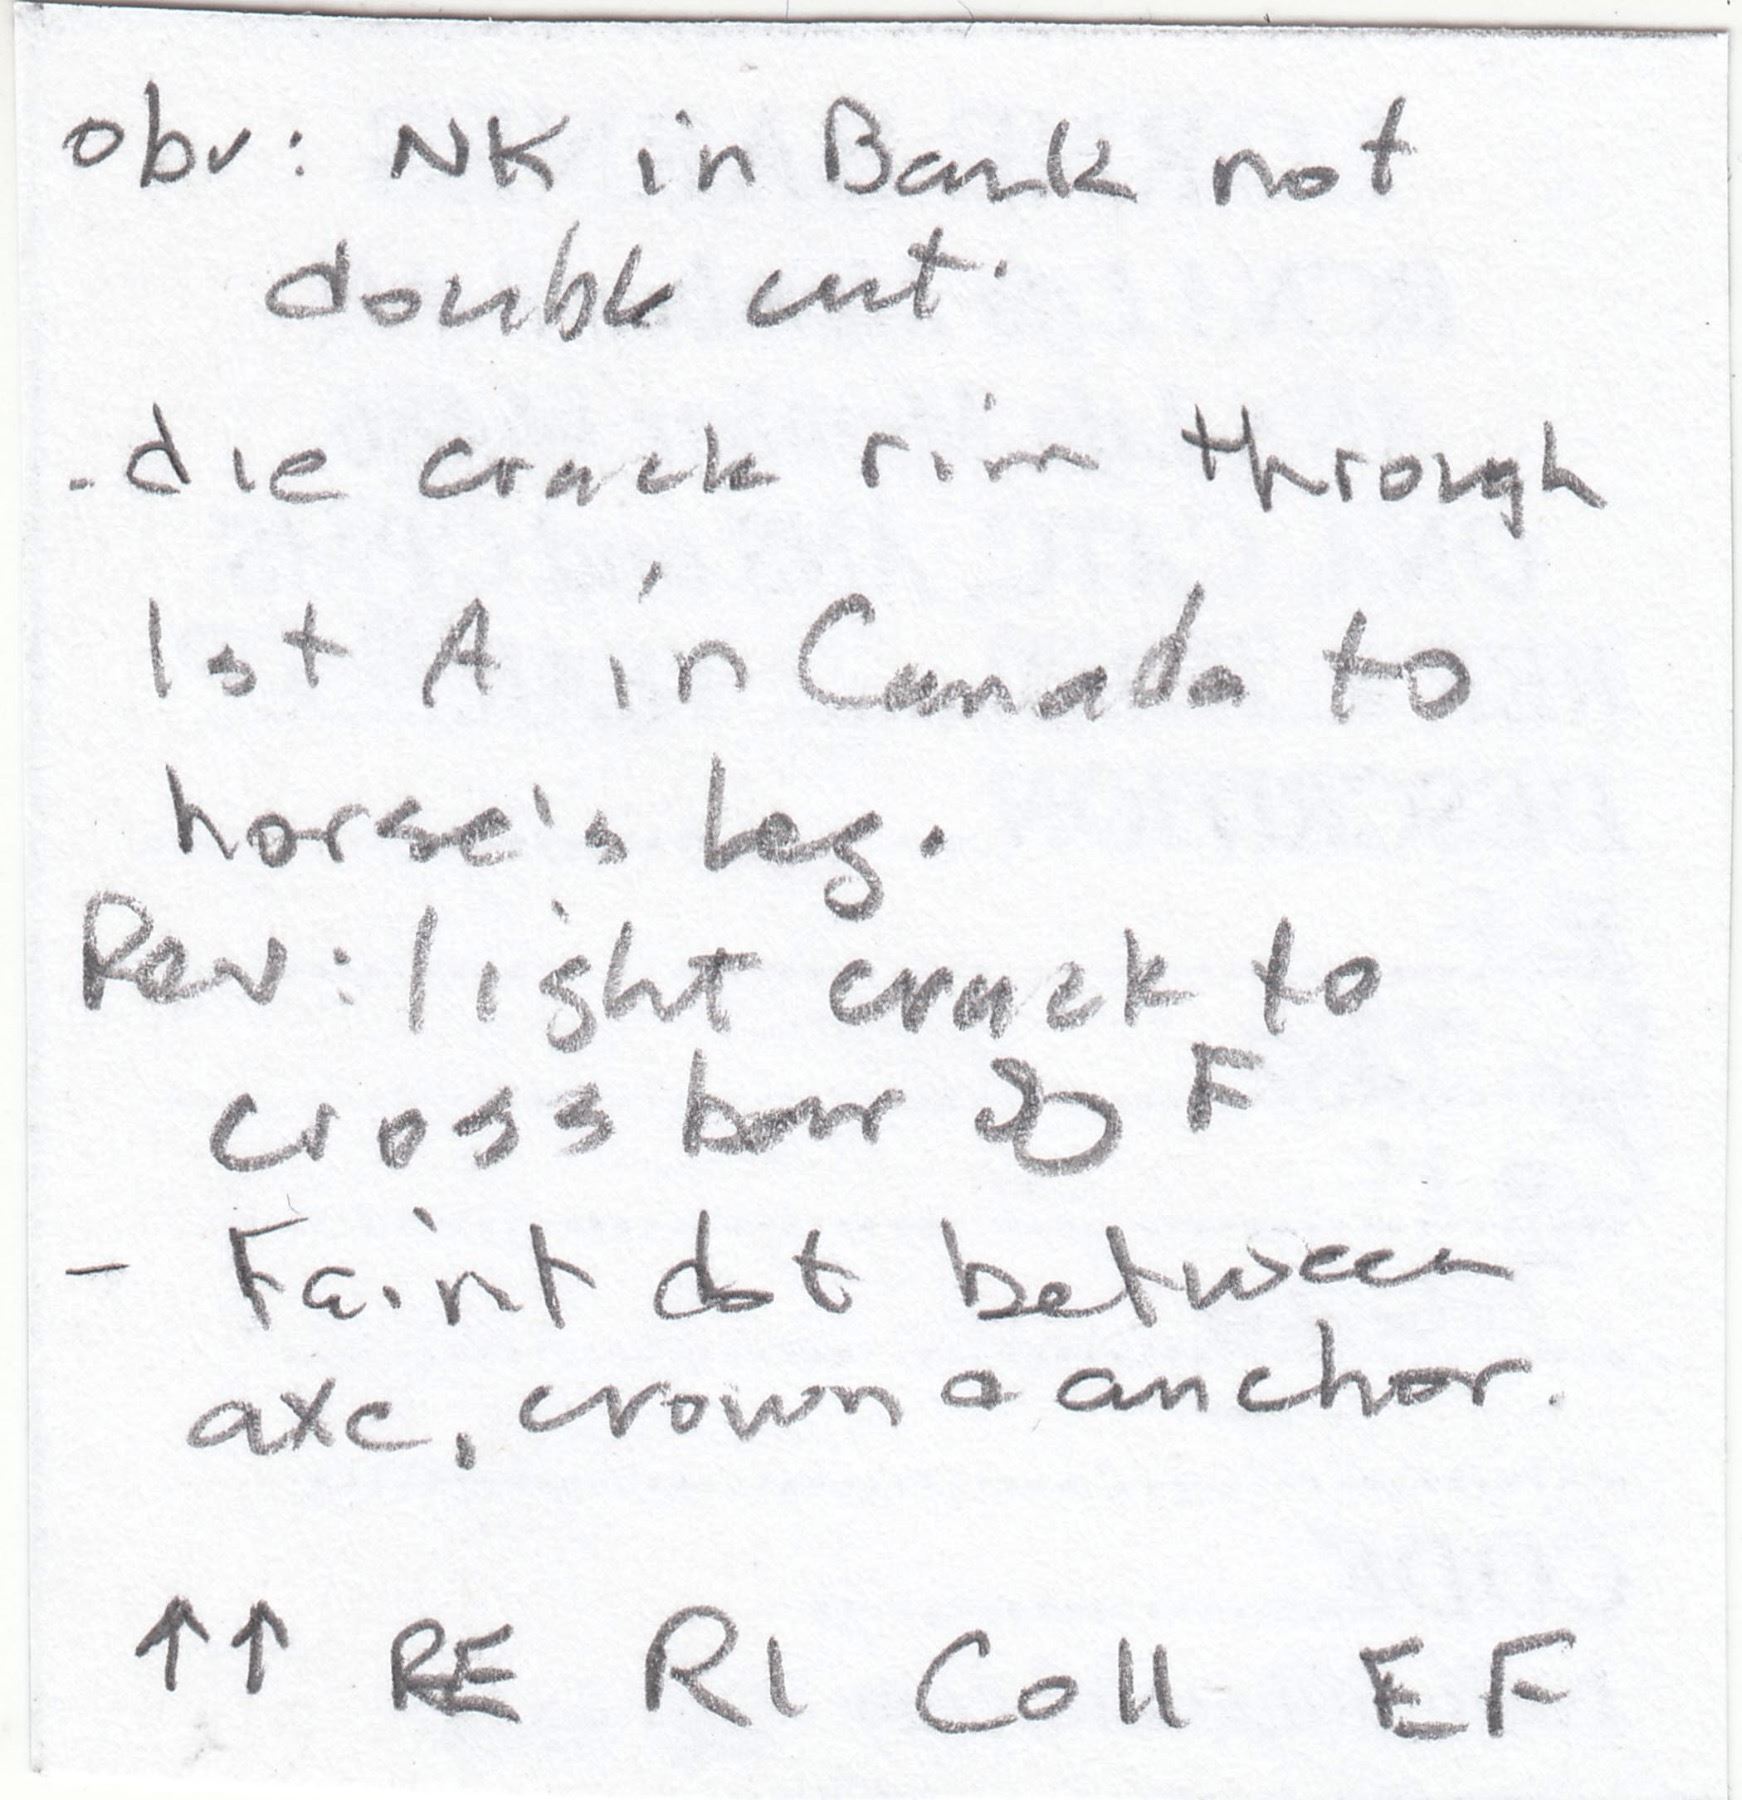 obv: NK in Bank not
double cut.
- die crack rim through
1st A in Canada to
horse's leg.
Rev: light crack to
cross bar F
- Faint dot between
axe, crown & anchor.
↑↑ RE R1 Coll EF